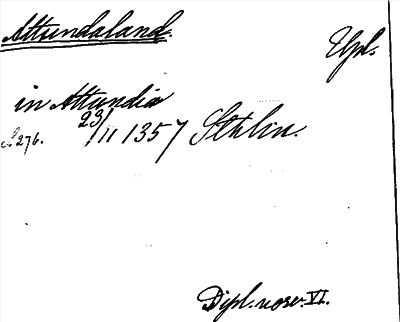 Attundaland.
Upl.
in Attundia
s. 276. 23/11 1357 Sthlm.
Dipl. norv. VI.